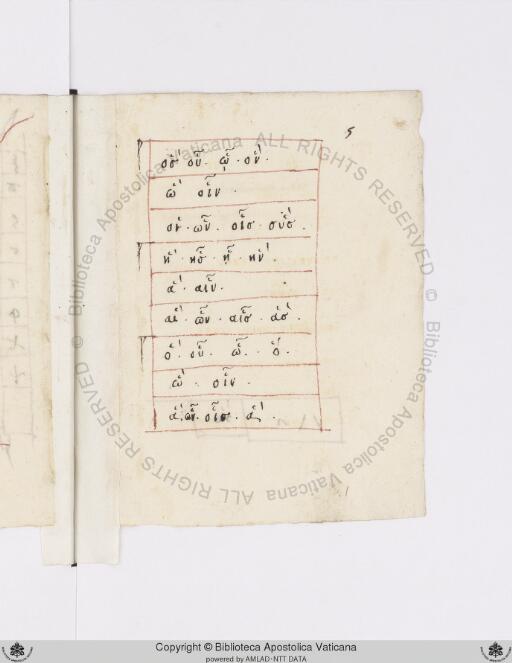 5
ος· οῦ· ῷ· ον·
ω· οῖν·
οι· ῶν· οῖς· ους·
η· ῆς· ῇ· ην·
α· αῖν·
αι· ῶν· αῖς· ας·
ο· οῦ· ῷ· ο·
ω· οῖν·
α· ῶν· οῖς· α·
© Biblioteca Apostolica Vaticana ALL RIGHTS RESERVED
© Biblioteca Apostolica Vaticana ALL RIGHTS RESERVED
Copyright © Biblioteca Apostolica Vaticana
powered by AMLAD-NTT DATA